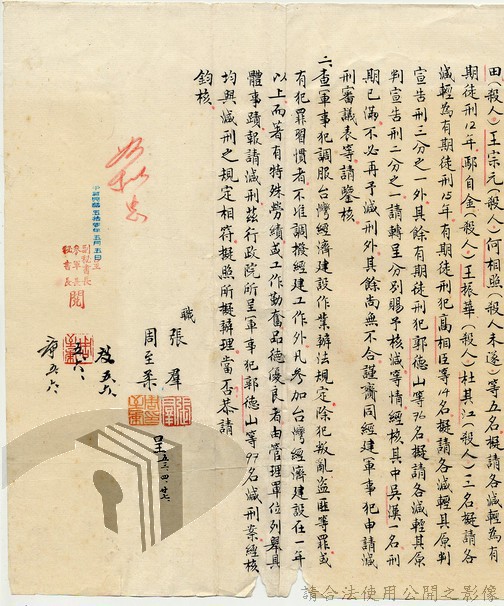 田(殺人)王宗元(殺人)何相照(殺人未遂)等五名擬請各減輕為有
期徒刑12年鄢自金(殺人)王振華(殺人)杜其江(殺人)三名擬請各
減輕為有期徒刑15年有期徒刑犯高相臣等14名擬請各減輕其原判
宣告刑三分之一外其餘有期徒刑犯郭德山等76名擬請各減輕其原
判宣告刑二分之一請轉呈分別賜予核減等情經核其中吳漢一名刑
期已滿不必再予減刑外其餘尚無不合謹齎同經建軍事犯申請減
刑審議表等請鑒核
二查軍事犯調服台灣經濟建設作業辦法規定除犯叛亂盜匪等罪或
有犯罪習慣者不准調撥經建工作外凡參加台灣經濟建設在一年
以上而著有特殊勞績或工作勤奮品德優良者由管理單位列舉具
體事蹟報請減刑茲行政院所呈軍事犯郭德山等97名減刑案經核
均與減刑之規定相符擬照所擬辦理當否恭請
鈞核
職 張群
周至柔
呈 五三、四、廿七、
五六
如擬
閱
請合法使用公開之影像